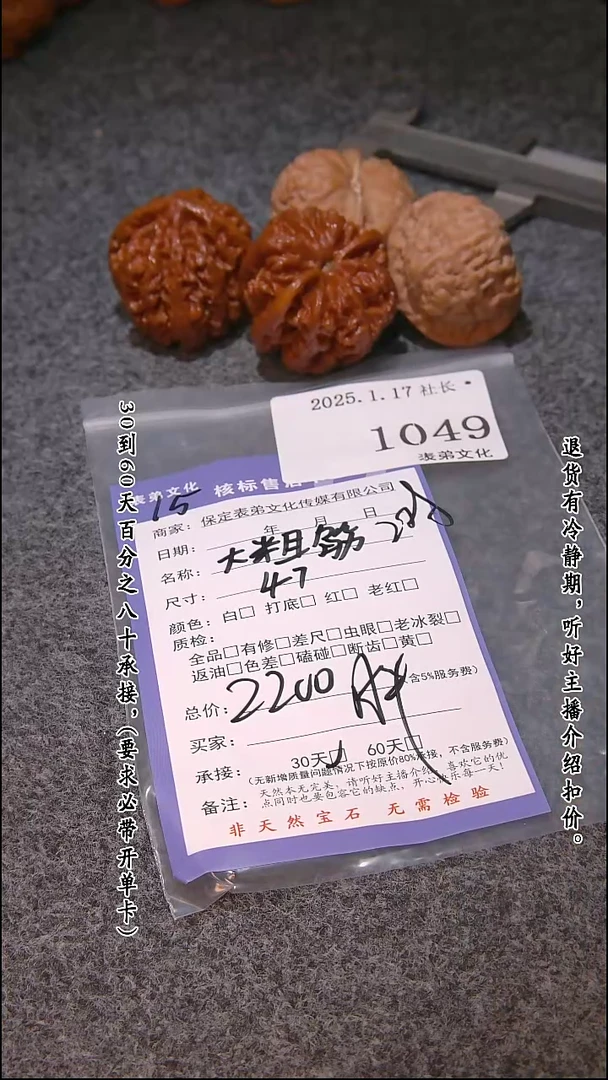 2025.1.17 社长·
1049
表弟文化
表弟文化 核标售后
15
商家：保定表弟文化传媒有限公司
日期： 年 月 日
名称：大粗筋
尺寸：47
颜色：白□ 打底□ 红□ 老红□
质检：
全品□有修□差尺□虫眼□老冰裂□
返油□色差□磕碰□断齿□黄□
总价：2200 (含5%服务费)
买家：
承接：30天□ 60天□
(无新增质量问题情况下按原价80%承接，不含服务费)
备注：天然本无完美，请听好主播介绍，喜欢它的优
点同时也要包容它的缺点，开心快乐每一天！
非天然宝石 无需检验
30到60天百分之八十承接，(要求必带开单卡)
退货有冷静期，听好主播介绍扣价。